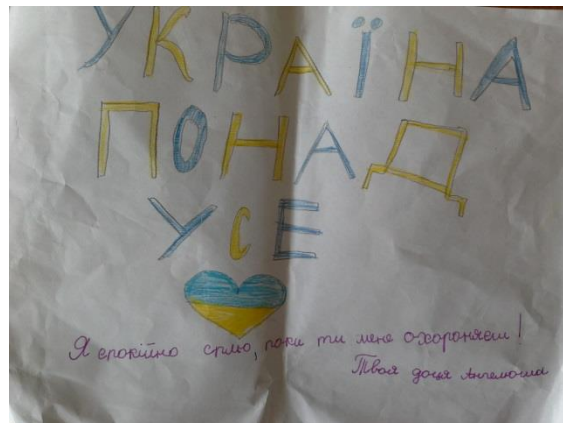 УКРАЇНА
ПОНАД
УСЕ
Я спокійно сплю, поки ти мене охороняєш!
Твоя доця Ангелюша